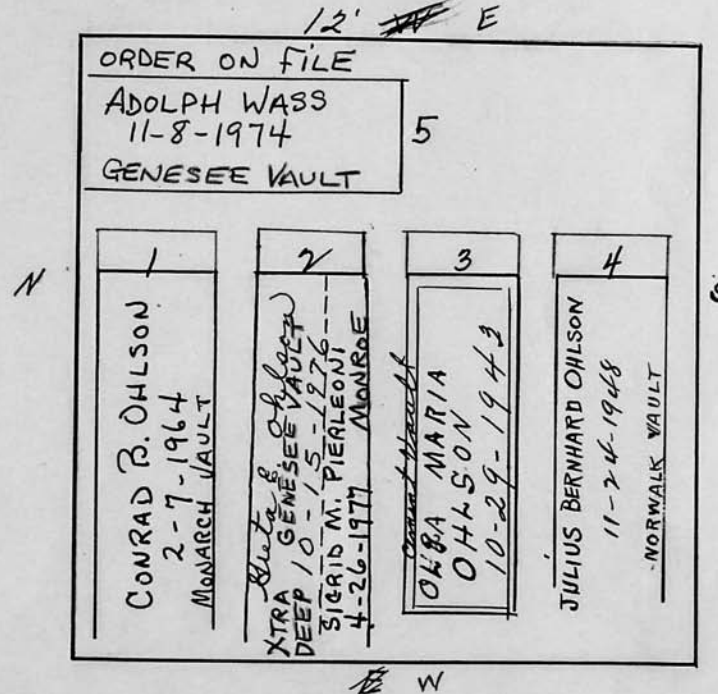 12' W E
ORDER ON FILE
ADOLPH WASS
11-8-1974
GENESEE VAULT
5
N
1
CONRAD B. OHLSON
2-7-1964
MONARCH VAULT
2
Greta E. Ohlson
XTRA GENESEE VAULT
DEEP 10-15-1976
SIGRID M. PIERLEONI
4-26-1977 MONROE
3
Cement Vault
OLGA MARIA
OHLSON
10-29-1943
4
JULIUS BERNHARD OHLSON
11-24-1948
NORWALK VAULT
E W